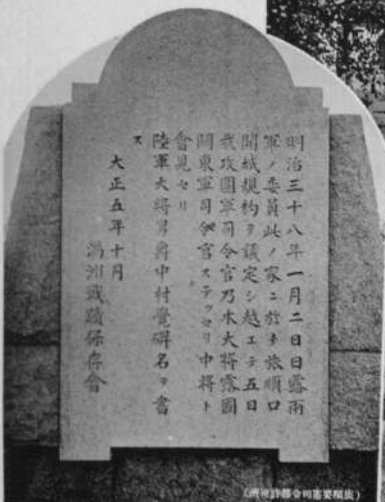 明治三十八年一月二日日露兩
軍ノ委員此ノ家ニ於テ旅順口
開城規約ヲ議定シ越エテ五日
我攻圍軍司令官乃木大將露國
關東軍司令官ステッセリ中將ト
會見セリ
陸軍大將男爵中村覺碑名ヲ書
ス
大正五年十月
滿洲戰蹟保存會
(旅順要塞司令部許可濟)